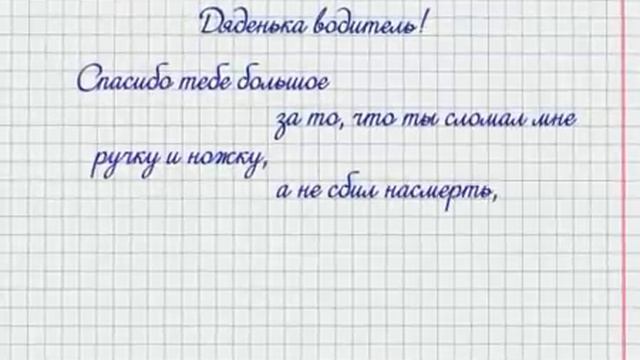 Дяденька водитель!
Спасибо тебе большое
за то, что ты сломал мне
ручку и ножку,
а не сбил насмерть,